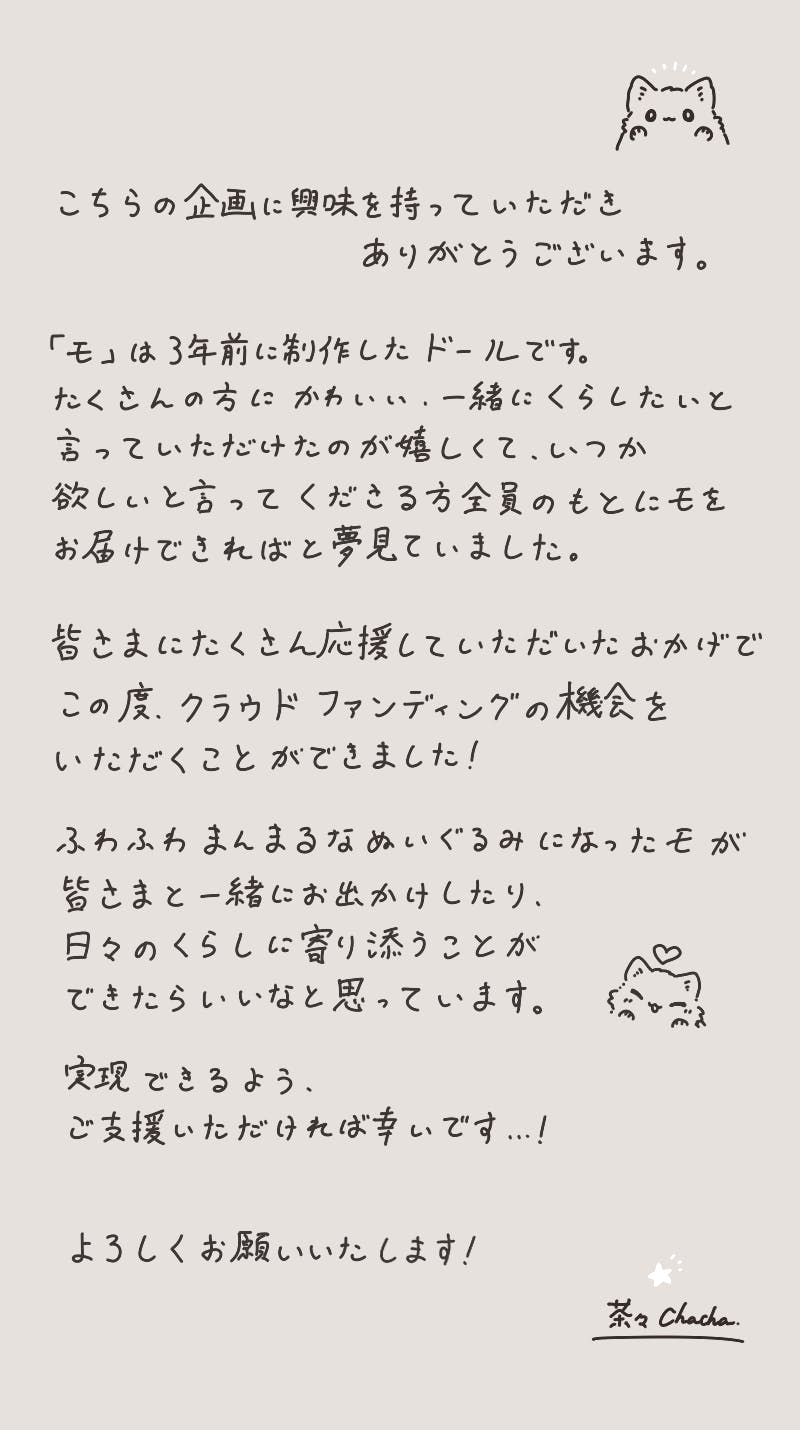 こちらの企画に興味を持っていただき
ありがとうございます。
「モ」は3年前に制作したドールです。
たくさんの方にかわいい、一緒にくらしたいと
言っていただけたのが嬉しくて、いつか
欲しいと言ってくださる方全員のもとにモを
お届けできればと夢見ていました。
皆さまにたくさん応援していただいたおかげで
この度、クラウドファンディングの機会を
いただくことができました!
ふわふわまんまるなぬいぐるみになったモが
皆さまと一緒にお出かけしたり、
日々のくらしに寄り添うことが
できたらいいなと思っています。
実現できるよう、
ご支援いただければ幸いです...!
よろしくお願いいたします!
茶々 Chacha.